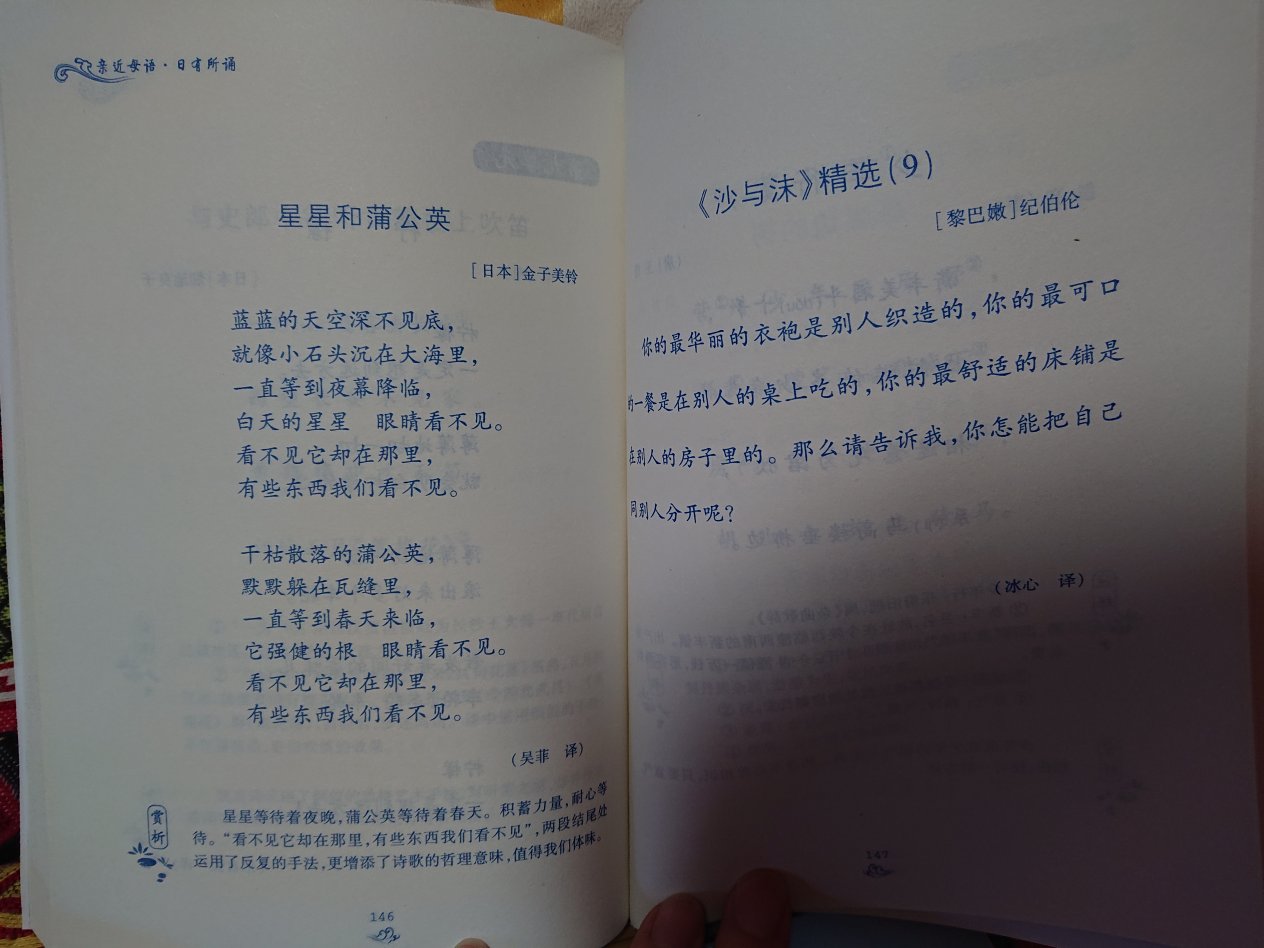 亲近母语·日有所诵
星星和蒲公英
[日本]金子美铃
蓝蓝的天空深不见底，
就像小石头沉在大海里，
一直等到夜幕降临，
白天的星星　眼睛看不见。
看不见它却在那里，
有些东西我们看不见。
干枯散落的蒲公英，
默默躲在瓦缝里，
一直等到春天来临，
它强健的根　眼睛看不见。
看不见它却在那里，
有些东西我们看不见。
（吴菲　译）
赏析
星星等待着夜晚，蒲公英等待着春天。积蓄力量，耐心等
待。“看不见它却在那里，有些东西我们看不见”，两段结尾处
运用了反复的手法，更增添了诗歌的哲理意味，值得我们体味。
146
《沙与沫》精选(9)
[黎巴嫩]纪伯伦
你的最华丽的衣袍是别人织造的，你的最可口
的一餐是在别人的桌上吃的，你的最舒适的床铺是
在别人的房子里的。那么请告诉我，你怎能把自己
同别人分开呢？
（冰心　译）
147